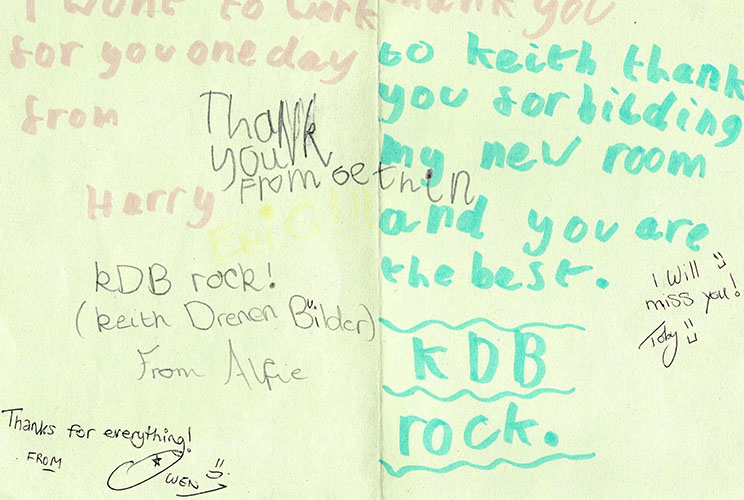 I wont to work
for you one day
from
Harry
Thank
you
From Gethin
Epic!!!
KDB rock!
(keith Drenen Builder)
From Alfie
Thanks for everything!
FROM
OWEN
thank you
to keith thank
you for bilding
my new room
and you are
the best.
KDB
rock.
I will
miss you!
Toby